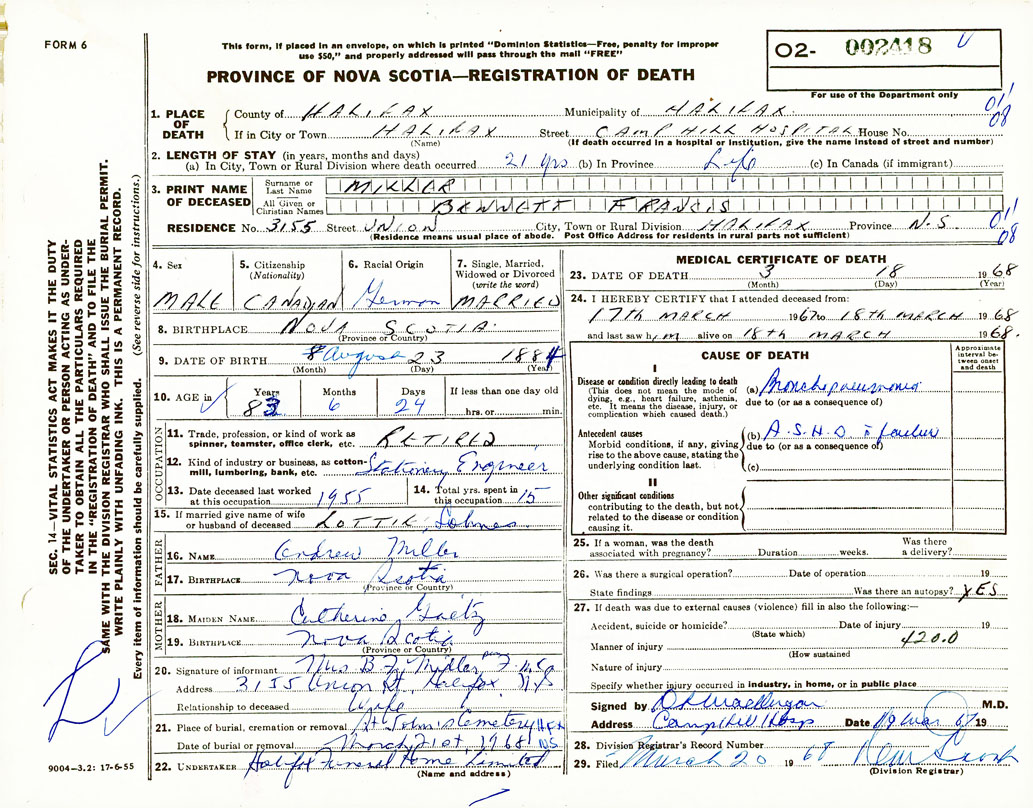 FORM 6
This form, if placed in an envelope, on which is printed "Dominion Statistics—Free, penalty for improper
use $50," and properly addressed will pass through the mail "FREE"
O2- 002418
For use of the Department only
PROVINCE OF NOVA SCOTIA—REGISTRATION OF DEATH
1. PLACE OF DEATH
County of HALIFAX Municipality of HALIFAX.
If in City or Town HALIFAX Street CAMP HILL HOSPITAL House No.
(Name) (If death occurred in a hospital or institution, give the name instead of street and number)
011
08
2. LENGTH OF STAY (in years, months and days)
(a) In City, Town or Rural Division where death occurred 21 yrs (b) In Province Life (c) In Canada (if immigrant)
3. PRINT NAME OF DECEASED
Surname or Last Name MILLAR
All Given or Christian Names BENNETT FRANCIS
RESIDENCE No. 3155 Street UNION City, Town or Rural Division HALIFAX Province N.S
(Residence means usual place of abode. Post Office Address for residents in rural parts not sufficient)
011
08
4. Sex MALE
5. Citizenship (Nationality) CANADIAN
6. Racial Origin German
7. Single, Married, Widowed or Divorced (write the word) MARRIED
8. BIRTHPLACE NOVA SCOTIA.
(Province or Country)
9. DATE OF BIRTH August 23 1884
(Month) (Day) (Year)
10. AGE in Years 83 Months 6 Days 24 If less than one day old hrs. or min.
OCCUPATION
11. Trade, profession, or kind of work as spinner, teamster, office clerk, etc. RETIRED
12. Kind of industry or business, as cotton-mill, lumbering, bank, etc. Stationery Engineer
13. Date deceased last worked at this occupation 1955
14. Total yrs. spent in this occupation 15
15. If married give name of wife or husband of deceased LOTTIE Lohnes
FATHER
16. NAME Andrew Miller
17. BIRTHPLACE Nova Scotia
(Province or Country)
MOTHER
18. MAIDEN NAME Catherine Gaetz
19. BIRTHPLACE Nova Scotia
(Province or Country)
20. Signature of informant Mrs B F Miller
Address 3155 Union St, Halifax NS
Relationship to deceased Wife
21. Place of burial, cremation or removal St John's Cemetery HFX
Date of burial or removal March 21st, 1968 NS
22. UNDERTAKER Halifax Funeral Home Limited
(Name and address)
9004-3.2: 17-6-55
MEDICAL CERTIFICATE OF DEATH
23. DATE OF DEATH 3 18 1968
(Month) (Day) (Year)
24. I HEREBY CERTIFY that I attended deceased from:
17TH MARCH 1967 to 18TH MARCH 1968
and last saw him alive on 18TH MARCH 1968.
CAUSE OF DEATH
Approximate interval between onset and death
I
Disease or condition directly leading to death
(This does not mean the mode of dying, e.g., heart failure, asthenia, etc. It means the disease, injury, or complication which caused death.)
(a) Bronchopneumonia
due to (or as a consequence of)
Antecedent causes
Morbid conditions, if any, giving rise to the above cause, stating the underlying condition last.
(b) A.S.H.D. c failure
due to (or as a consequence of)
(c)
II
Other significant conditions
contributing to the death, but not related to the disease or condition causing it.
25. If a woman, was the death associated with pregnancy? Duration weeks. Was there a delivery?
26. Was there a surgical operation? Date of operation 19
State findings Was there an autopsy? YES
27. If death was due to external causes (violence) fill in also the following:—
Accident, suicide or homicide? Date of injury 19
(State which)
Manner of injury 420.0
(How sustained
Nature of injury
Specify whether injury occurred in industry, in home, or in public place
Signed by M.D.
Address Camp Hill Hosp Date 19 Mar 68 19
28. Division Registrar's Record Number
29. Filed March 20 1968
(Division Registrar)
SEC. 14—VITAL STATISTICS ACT MAKES IT THE DUTY
OF THE UNDERTAKER OR PERSON ACTING AS UNDER-
TAKER TO OBTAIN ALL THE PARTICULARS REQUIRED
IN THE "REGISTRATION OF DEATH" AND TO FILE THE
SAME WITH THE DIVISION REGISTRAR WHO SHALL ISSUE THE BURIAL PERMIT.
WRITE PLAINLY WITH UNFADING INK. THIS IS A PERMANENT RECORD.
Every item of information should be carefully supplied. (See reverse side for instructions.)